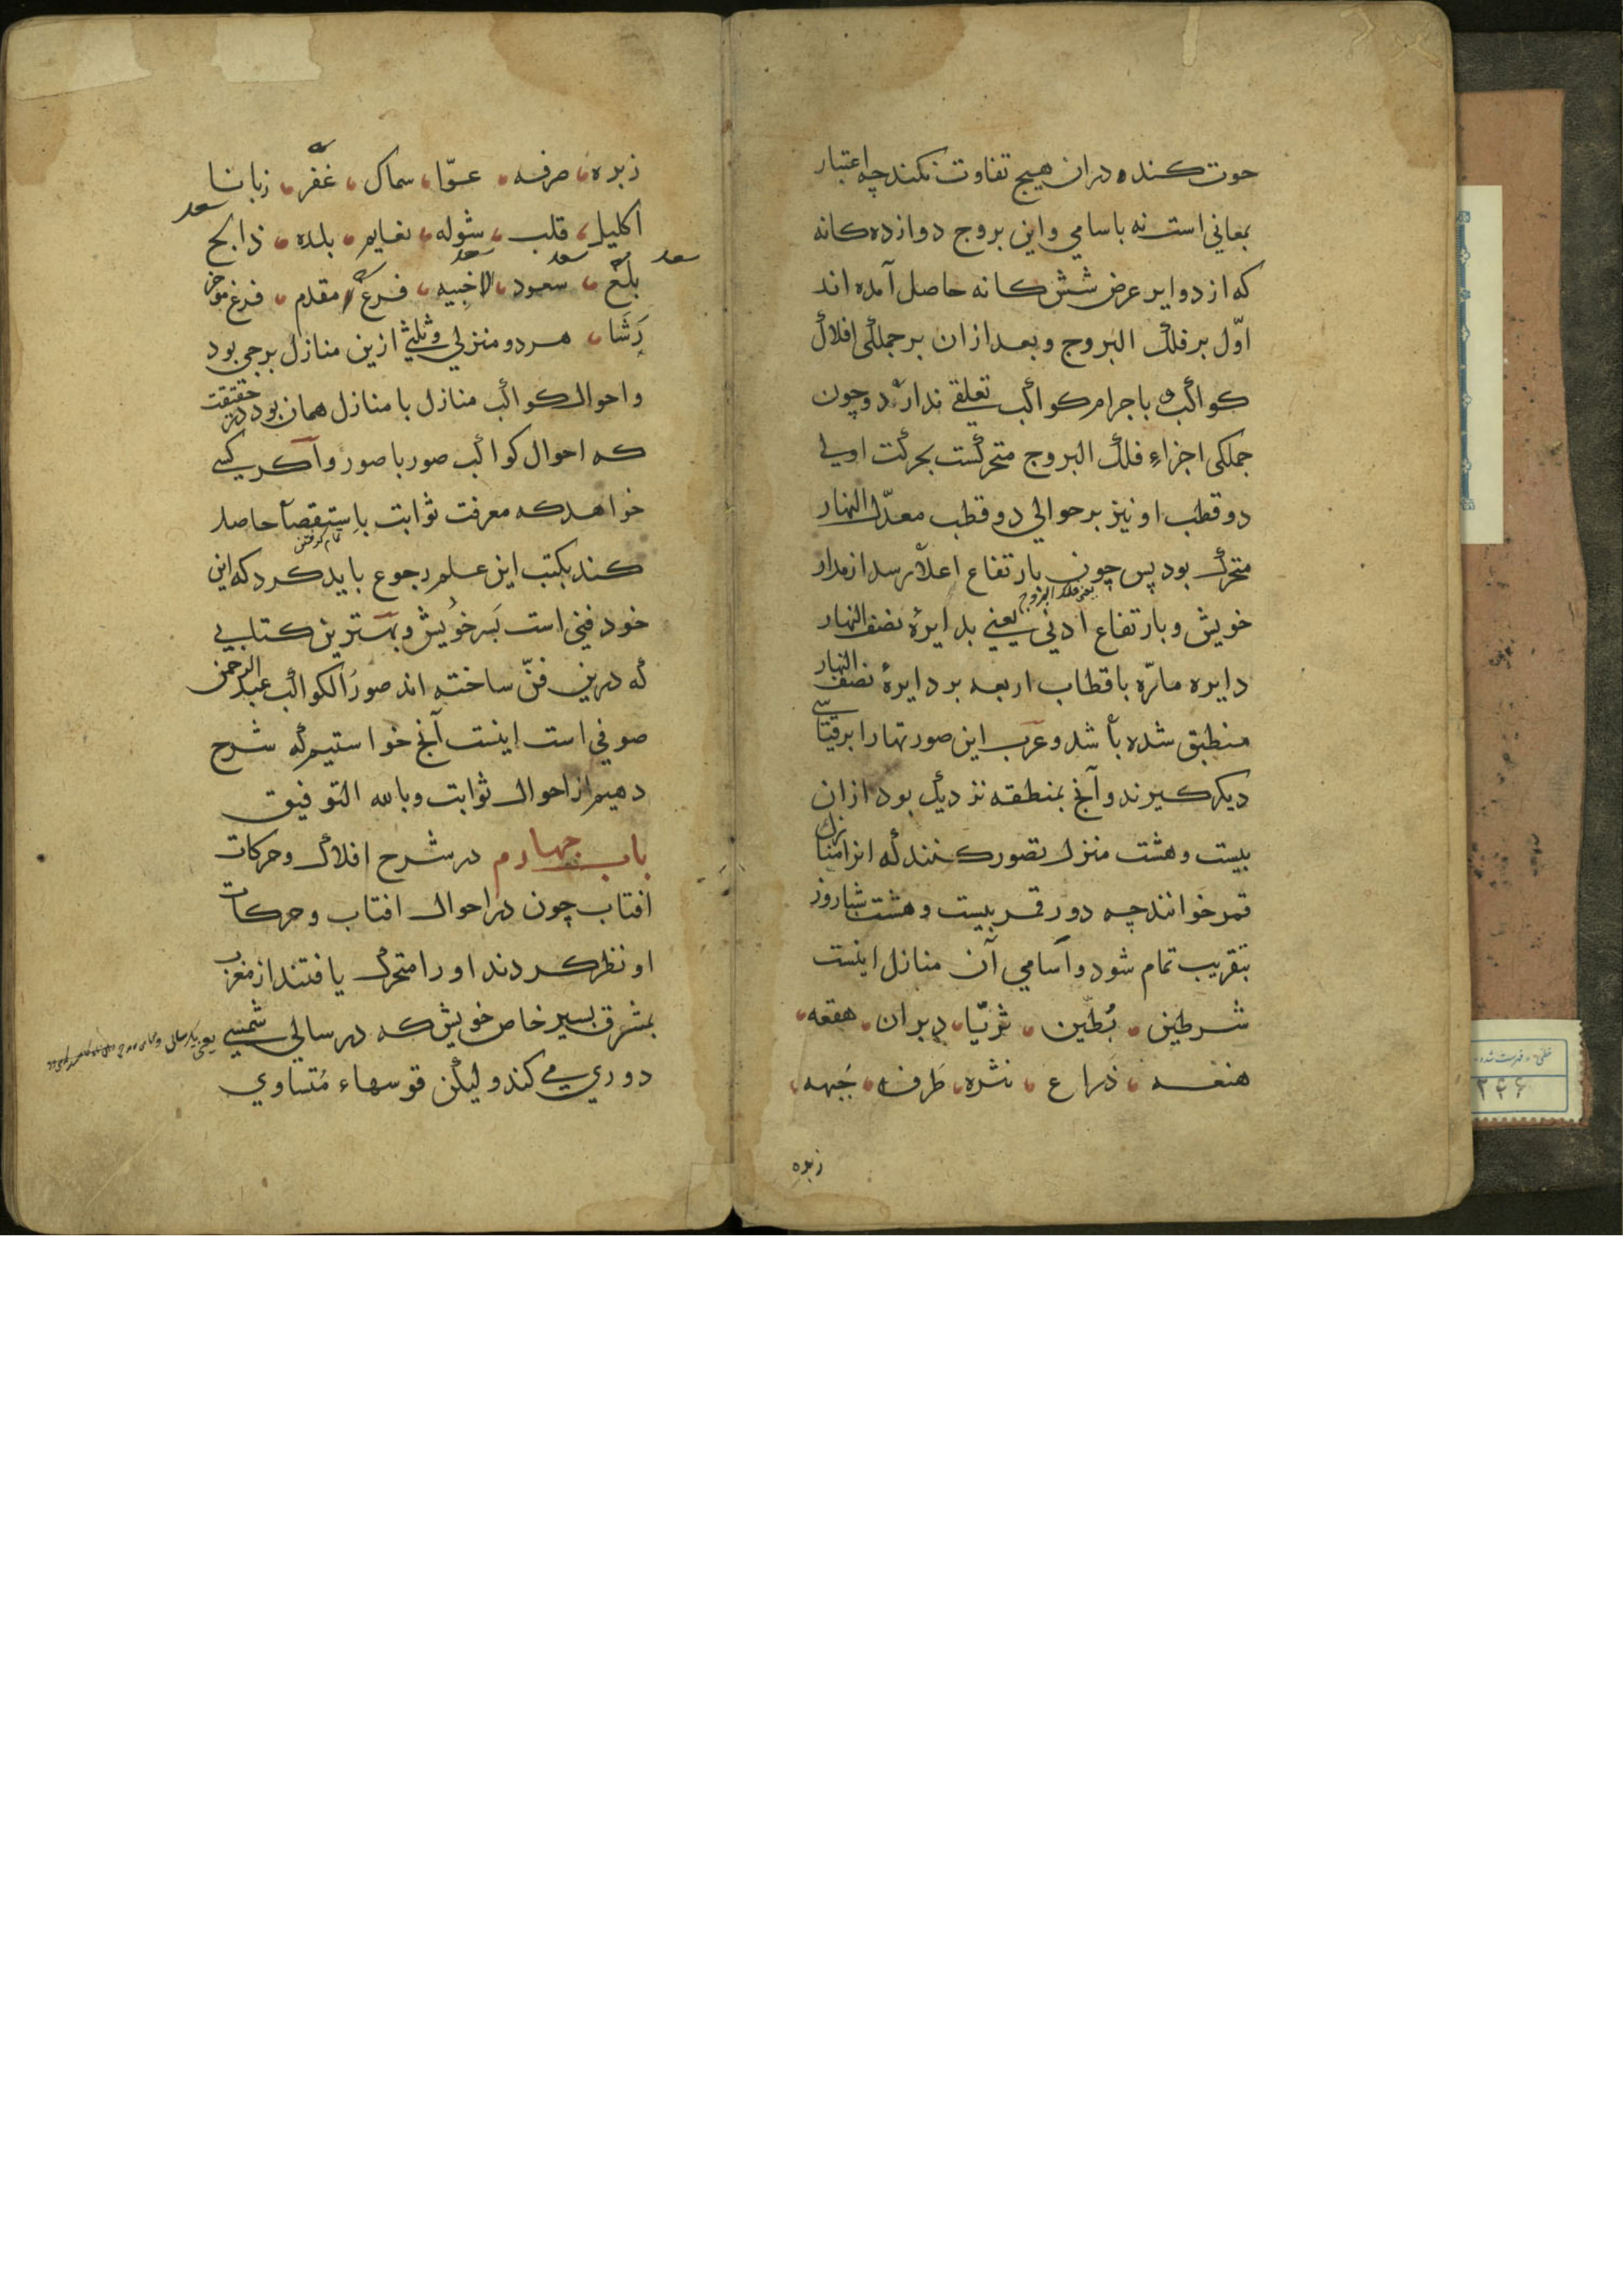 حوت کننده دران هیچ تفاوت نکند چه اعتبار
بمعانی است نه باسامی و این بروج دوازده کانه
که از دوایر عرض شش کانه حاصل آمده اند
اوّل بر فلک البروج و بعد ازان بر جملکی افلاک
کواکب باجرام کواکب تعلقی ندارد و چون
جملکی اجزاءِ فلک البروج متحرکست بحرکت اولی
دو قطب او نیز بر حوالی دو قطب معدّل النهار
متحرک بود پس چون بارتفاع اعلا رسد از مدار
یعنی فلک البروج
خویش و بارتفاع ادنی یعنی بدایرهٔ نصف النهار
دایره مارّه باقطاب اربعه بر دایرهٔ نصف النهار
منطبق شده باشد و عرب این صورتها را بر قیاسی
دیکر کیرند و آنچ بمنطقه نزدیک بود ازان
بیست و هشت منزل تصور کنند که انرا منازل
قمر خوانند چه دور قمر بیست و هشت شباروز
بتقریب تمام شود و اسامی آن منازل اینست
شرطین بُطَین ثریّا دبران هقعه
هنعه ذراع نثره طَرفه جَبهه
زبره
زبره صرفه عوّا سماک غَفر زبانا
اکلیل قلب شوله نعایم بلده سعد ذابح
سعد بلع سعد سعود سعد الاخبیه فرغ مقدم فرغ موخر
رَشَا هر دو منزلی و ثلثی ازین منازل برجی بود
و احوال کواکب منازل با منازل همان بود در حقیقت
که احوال کواکب صور با صور و اکر کسی
خواهد که معرفت ثوابت باِستقصا حاصل
تمام کرفتن
کند بکتب این علم رجوع باید کرد که این
خود فنی است بَسر خویش و بهترین کتابی
که درین فنّ ساخته اند صور الکواکب عبد الرحمن
صوفی است اینست آنچ خواستیم که شرح
دهیم از احوال ثوابت و بالله التوفیق
باب چهارم در شرح افلاک و حرکات
افتاب چون در احوال افتاب و حرکات
او نظر کردند او را متحرک یافتند از مغرب
بمشرق بسیر خاص خویش که در سالی شمسی
دوری می کند و لیکن قوسهاء مُتساوی
خطی - فهرست شده